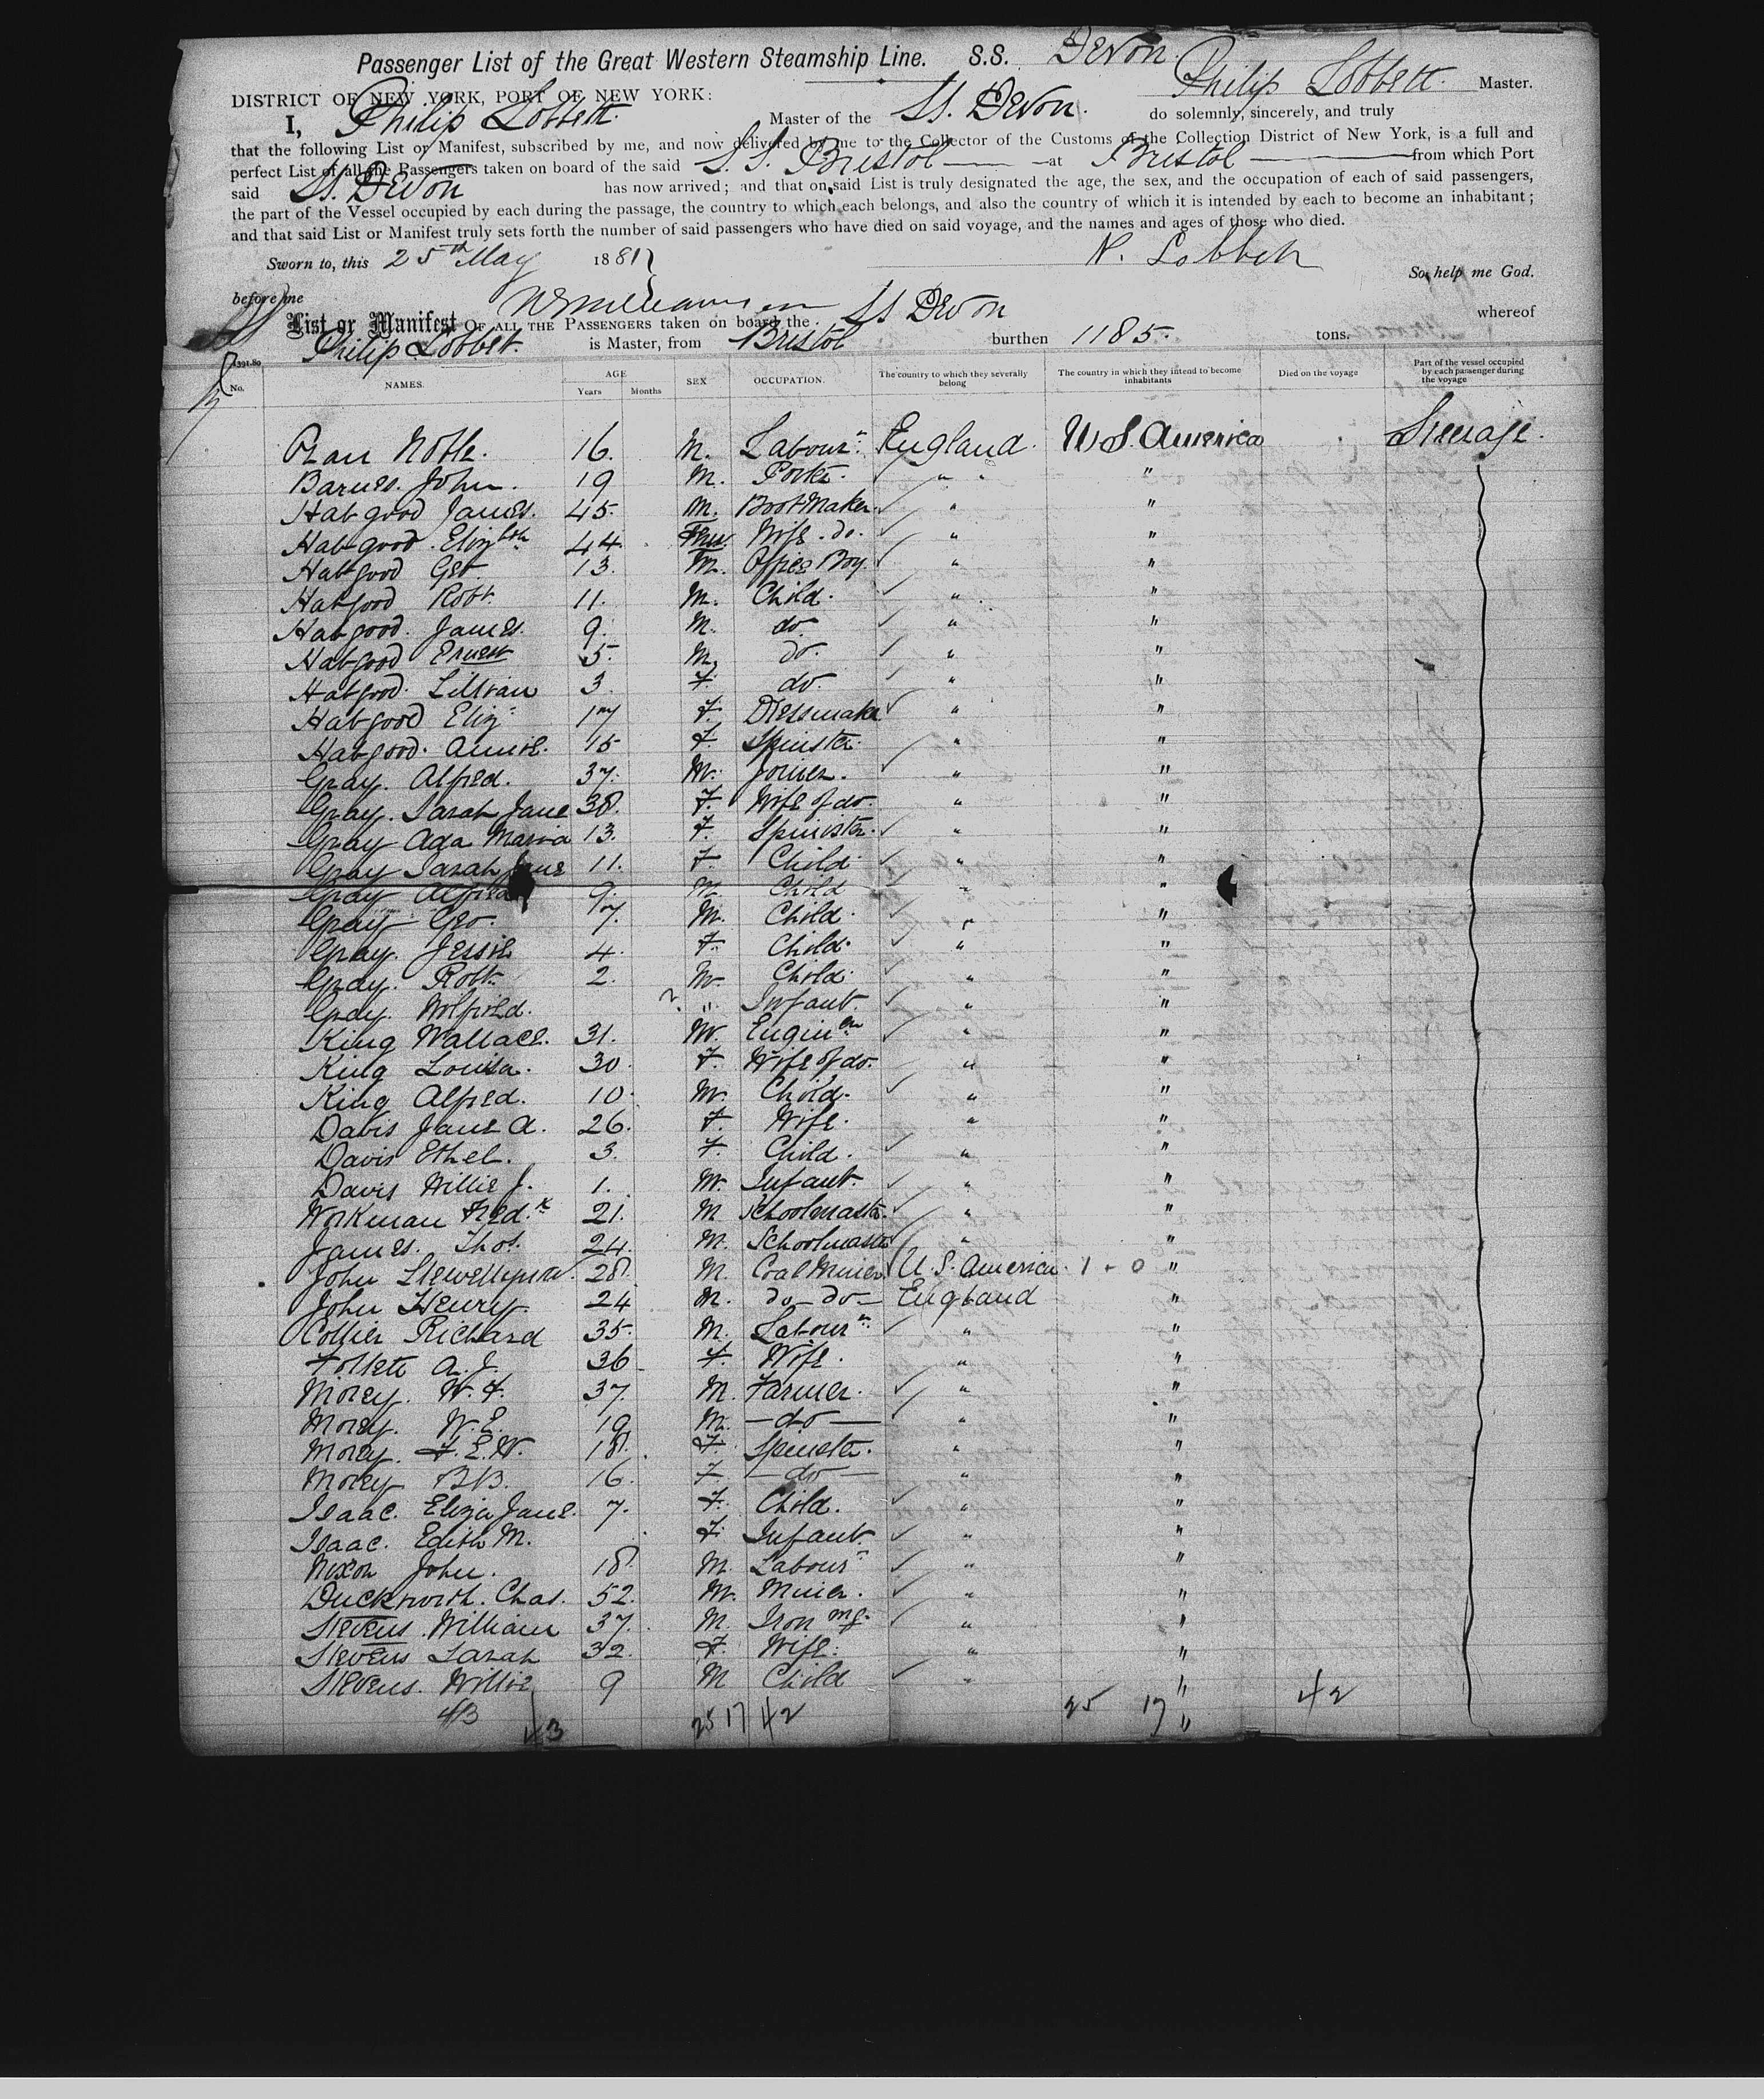 Passenger List of the Great Western Steamship Line. S.S. Devon
Philip Lobbett. Master.
DISTRICT OF NEW YORK, PORT OF NEW YORK:
I, Philip Lobbett. Master of the SS. Devon. do solemnly, sincerely, and truly
that the following List or Manifest, subscribed by me, and now delivered by me to the Collector of the Customs of the Collection District of New York, is a full and
perfect List of all the Passengers taken on board of the said S.S. Bristol at Bristol from which Port
said SS. Devon has now arrived; and that on said List is truly designated the age, the sex, and the occupation of each of said passengers,
the part of the Vessel occupied by each during the passage, the country to which each belongs, and also the country of which it is intended by each to become an inhabitant;
and that said List or Manifest truly sets forth the number of said passengers who have died on said voyage, and the names and ages of those who died.
Sworn to, this 25th May 1881 Lobbett
So help me God.
before me
List or Manifest OF ALL THE PASSENGERS taken on board the SS Devon whereof
Philip Lobbett. is Master, from Bristol burthen 1185. tons.
No. NAMES. AGE Years Months SEX OCCUPATION. The country to which they severally belong The country in which they intend to become inhabitants Died on the voyage Part of the vessel occupied by each passenger during the voyage
16. M. Labourr. England. U.S. America Steerage.
Barnes. John. 19 M. Porter. " "
Habgood James. 45. M. BootMaker " "
Habgood. Elizbth 44. Fem Wife. do. " "
Habgood Geo. 13. M. Office Boy. " "
Habgood Robt. 11. M. Child. " "
Habgood. James. 9. M. do. " "
Habgood Ernest 5. M. do. " "
Habgood. Lillian 3. F. do. " "
Habgood Eliz. 17 F. Dressmaker " "
Habgood. Annie. 15 F. Spinster. " "
Gray. Alfred. 37. M. Joiner. " "
Gray. Sarah Jane 38. F. Wife of do. " "
Gray Ada Maria 13. F. Spinster. " "
Gray Sarah Jane 11. F Child " "
Gray Alfred 9. M. Child " "
Gray Geo. 7. M. Child. " "
Gray. Jessie 4. F. Child. " "
Gray. Robt. 2. M. Child. " "
Gray. Infant. " "
King Wallace. 31. M. Engineer " "
King Louisa. 30. F. Wife of do. " "
King Alfred. 10. M. Child. " "
Davis Jane A. 26. F. Wife. " "
Davis Ethel. 3. F. Child. " "
Davis Willie J. 1. M. Infant. " "
Workman Fred.k 21. M Schoolmaster. " "
James. Thos. 24. M. Schoolmaster " "
John Llewellyn 28. M. Coal Miner U.S. America. 1 - 0 "
John Henry 24 M. do - do - England "
Collier Richard 35. M. Labourr. " "
Follett A. J. 36 F. Wife. " "
Morey. W. F. 37. M. Farmer. " "
Morey. W. E. 19 M. - do - " "
Morey. F. E. W. 18. F. Spinster. " "
Morey B B. 16. F. - do - " "
Isaac. Eliza Jane. 7. F. Child. " "
Isaac. Edith M. F. Infant. " "
Nixon John. 18. M. Labourr " "
Duckworth. Chas. 52. M. Miner. " "
Stevens. William 37. M. Iron mg. " "
Stevens Sarah 32. F. Wife. " "
Stevens. Willie 9 M Child " "
43 25 17 42 25 17 " 42
43